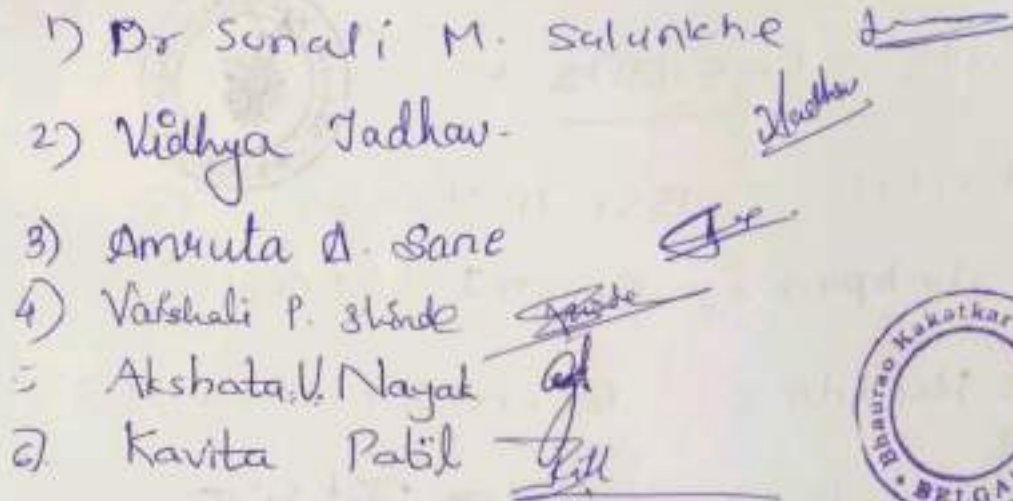 1) Dr Sunali M. Salunkhe
2) Vidhya Jadhav.
3) Amruta A. Sane
4) Varshali P. Shinde
Akshata.V. Nayak
6) Kavita Patil
Bhaurao Kakatkar
BELGA